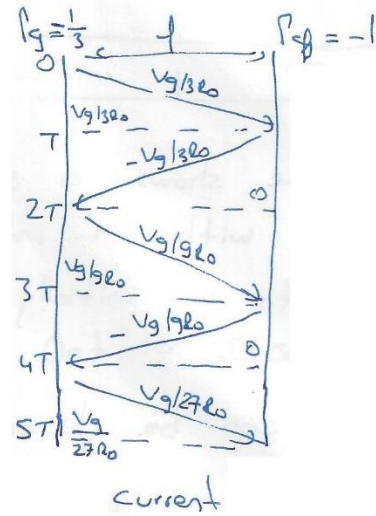 Γg = 1/3
l
Γ = -1
0
Vg/3R0
Vg/3R0
T
-Vg/3R0
0
2T
Vg/9R0
Vg/9R0
3T
-Vg/9R0
0
4T
Vg/27R0
5T
Vg/27R0
current